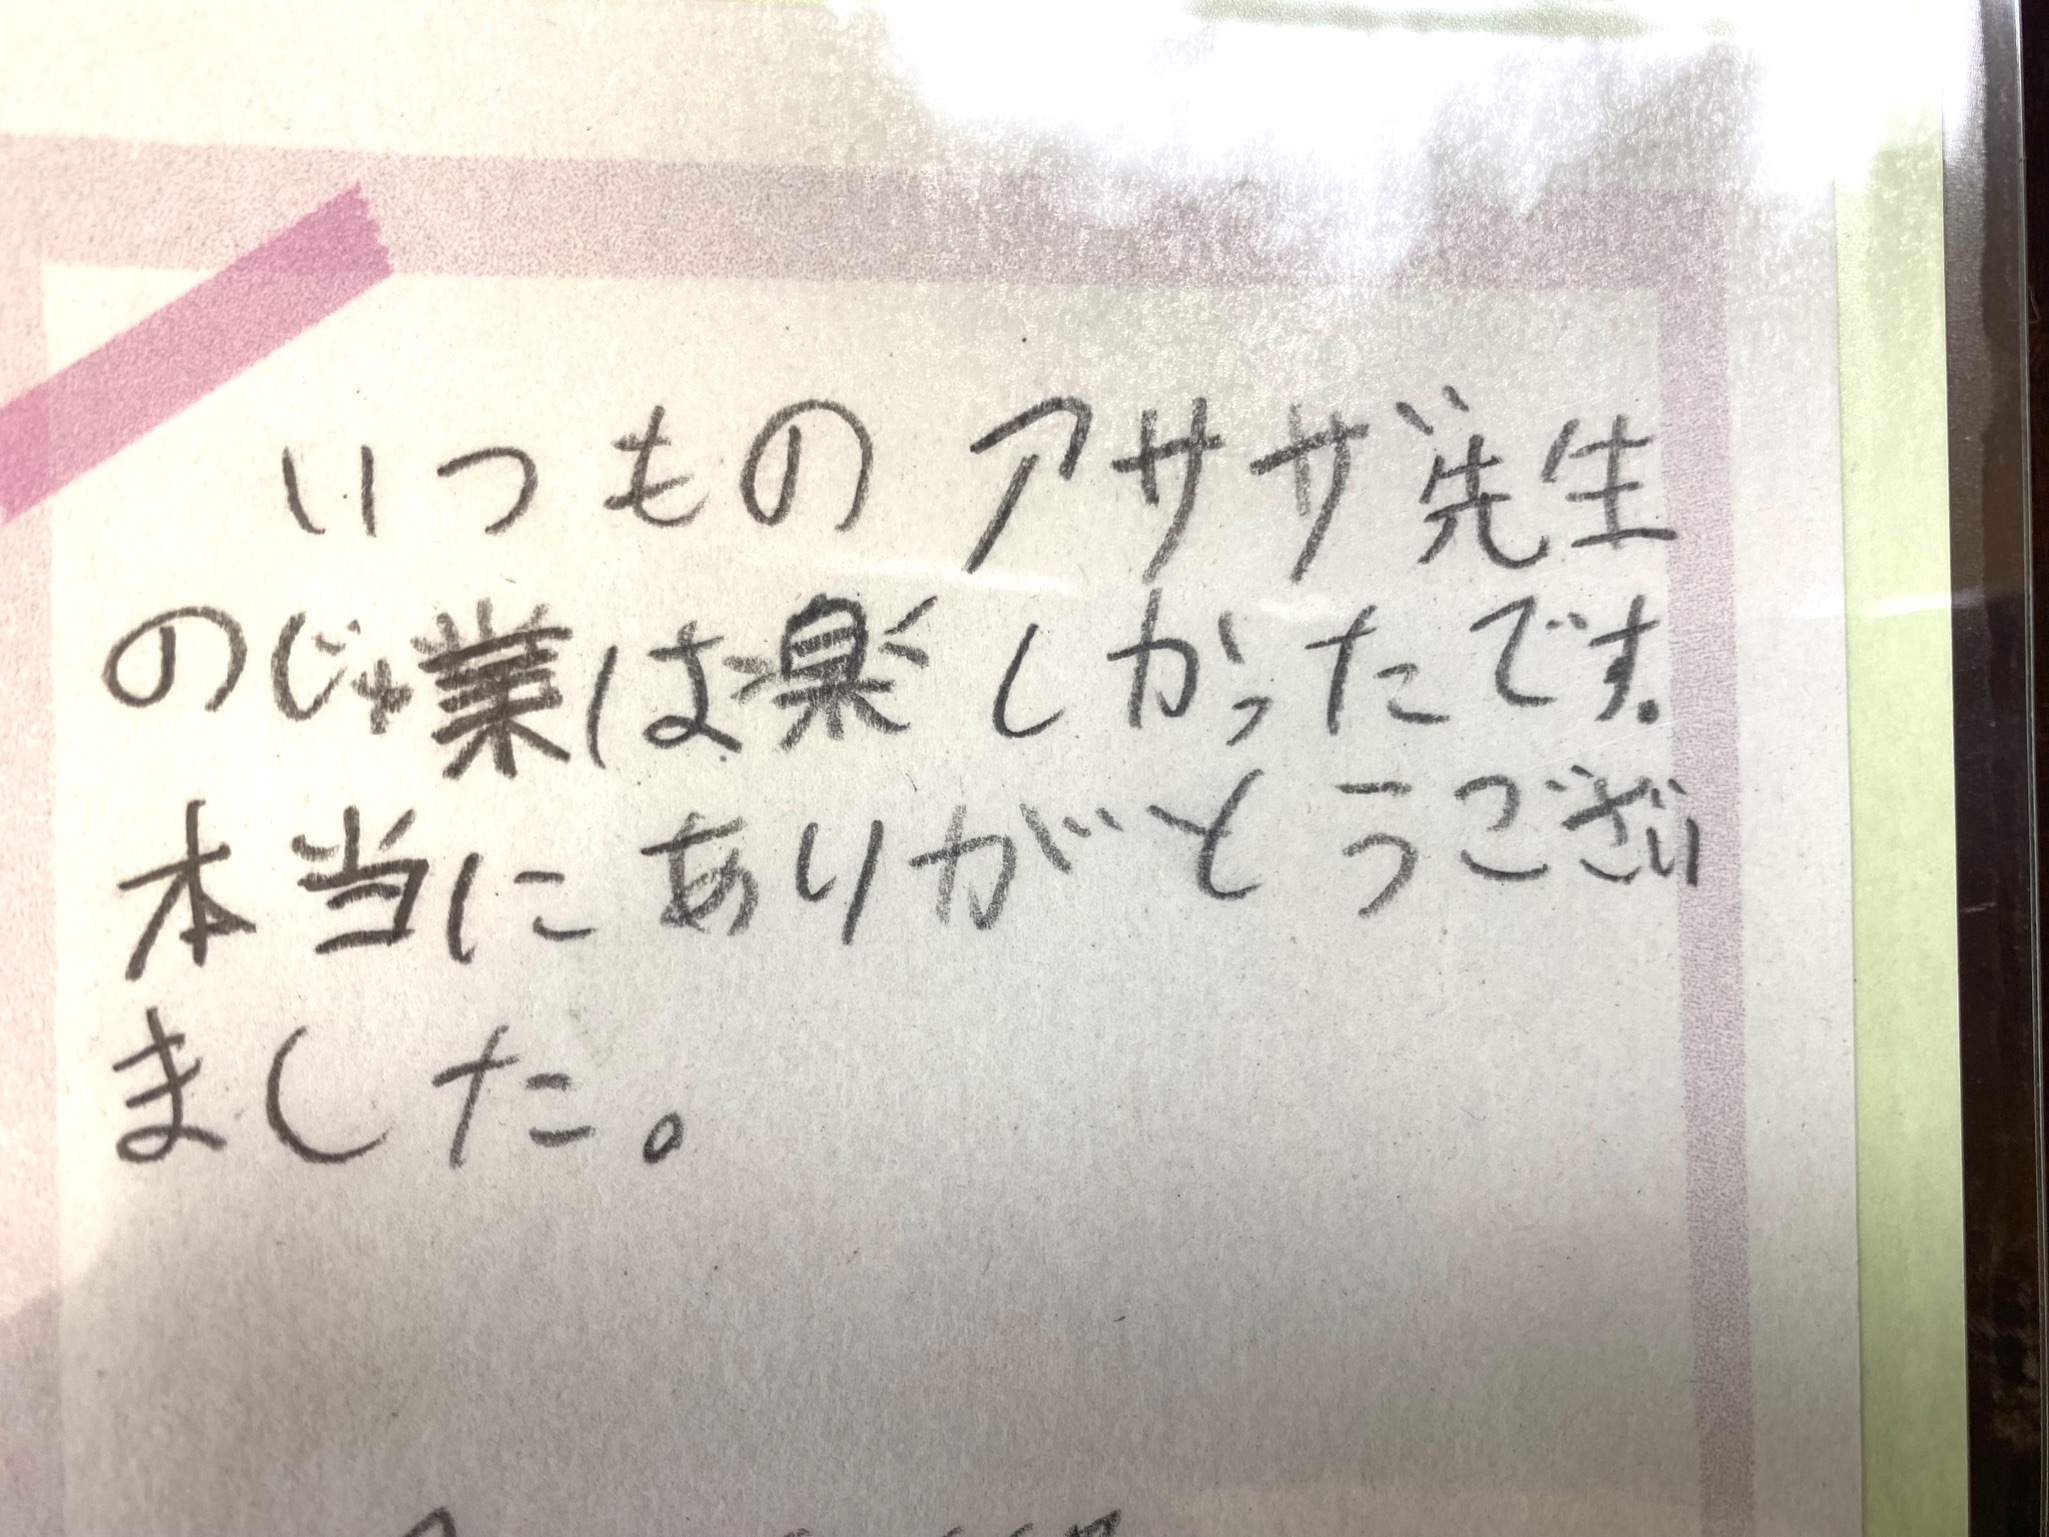 いつものアサザ先生
のじゅ業は楽しかったです。
本当にありがとうござい
ました。